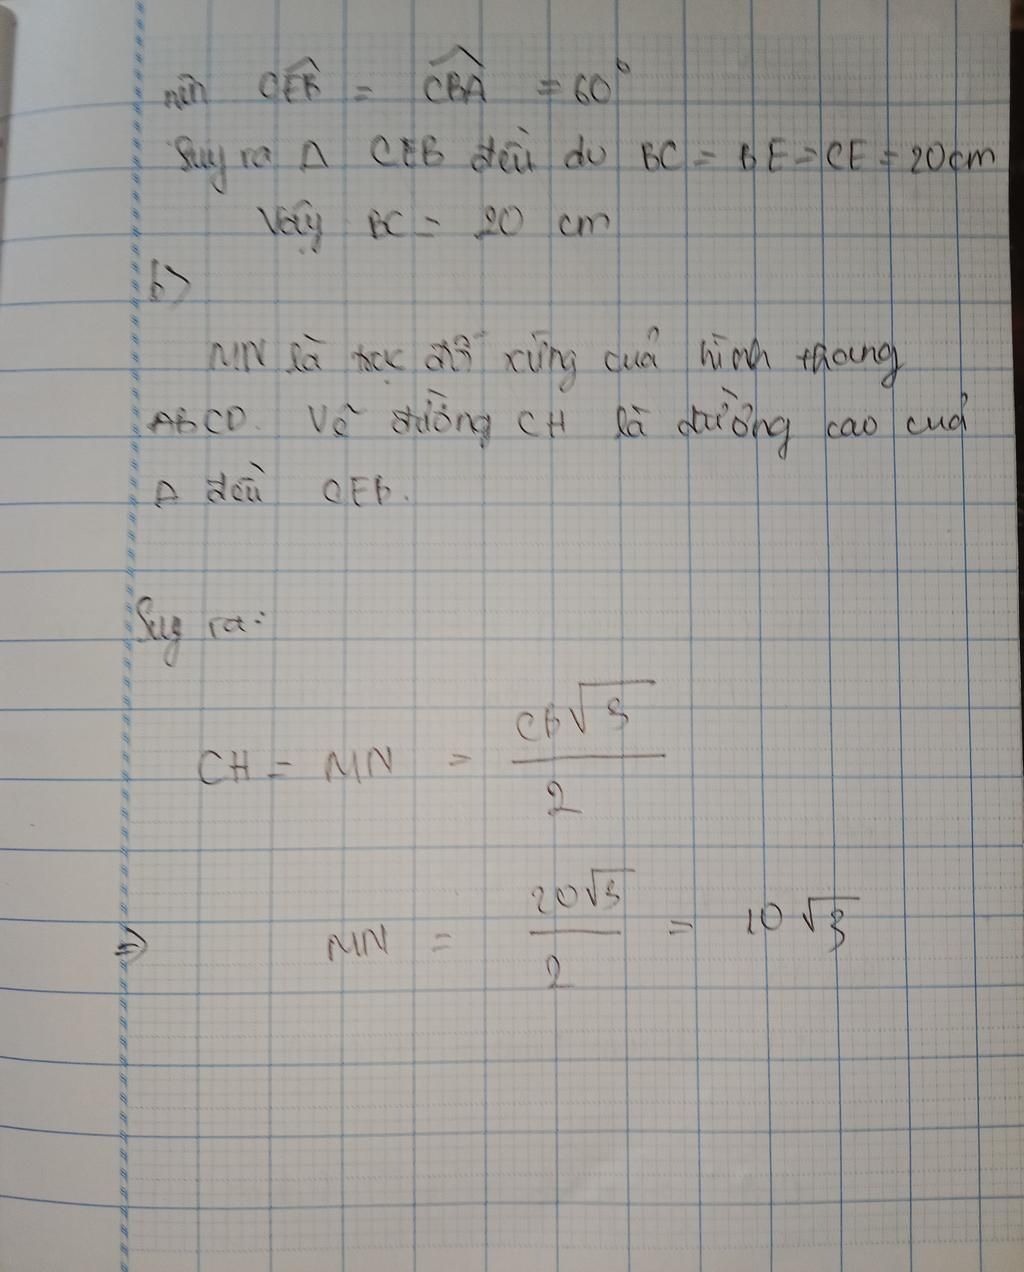 nên CEB = CBA = 60°
Suy ra Δ CEB đều do BC = BE = CE = 20cm
Vậy BC = 20 cm
b>
MN là trục đối xứng của hình thang
ABCD. Vẽ đường CH là đường cao của
Δ đều CEB.
Suy ra:
CH = MN = CB√3 / 2
⇒ MN = 20√3 / 2 = 10√3